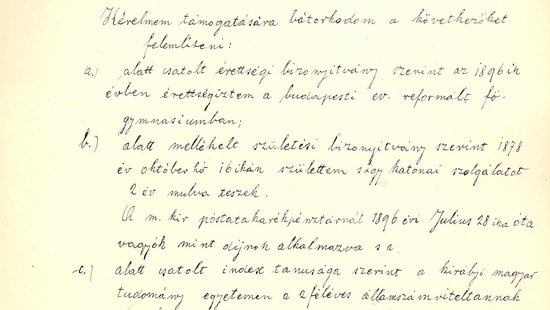 Kérelmem támogatására bátorkodom a következőket
felemliteni:
a.) alatt csatolt érettségi bizonyitvány szerint az 1896ik
évben érettségiztem a budapesti ev. reformált fő-
gymnasiumban;
b.) alatt mellékelt születési bizonyitvány szerint 1878
év októberhó 16ikán születtem s igy katonai szolgálatot
2 év mulva teszek.
A m. kir postatakarékpénztárnál 1896 évi Julius 28ika óta
vagyok mint dijnok alkalmazva s a
c.) alatt csatolt index tanusága szerint a királyi magyar
tudomány egyetemen a 2 féléves államszámviteltannak